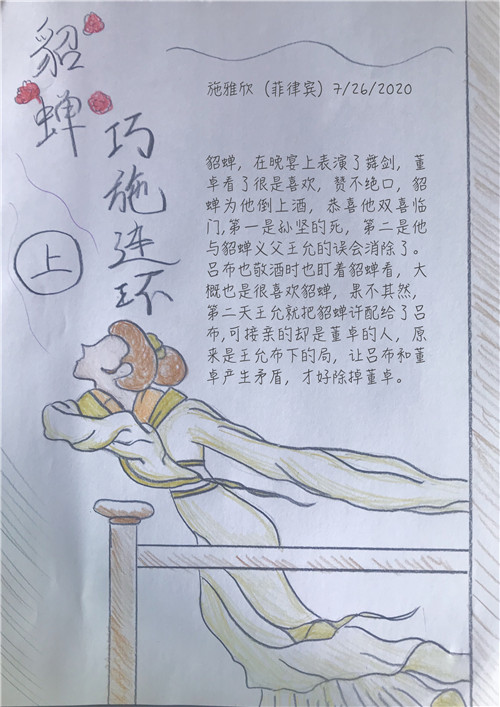 貂蝉
巧施连环
上
施雅欣（菲律宾）7/26/2020
貂蝉，在晚宴上表演了舞剑，董
卓看了很是喜欢，赞不绝口，貂
蝉为他倒上酒，恭喜他双喜临
门,第一是孙坚的死，第二是他
与貂蝉义父王允的误会消除了。
吕布也敬酒时也盯着貂蝉看，大
概也是很喜欢貂蝉，果不其然，
第二天王允就把貂蝉许配给了吕
布,可接亲的却是董卓的人，原
来是王允布下的局，让吕布和董
卓产生矛盾，才好除掉董卓。